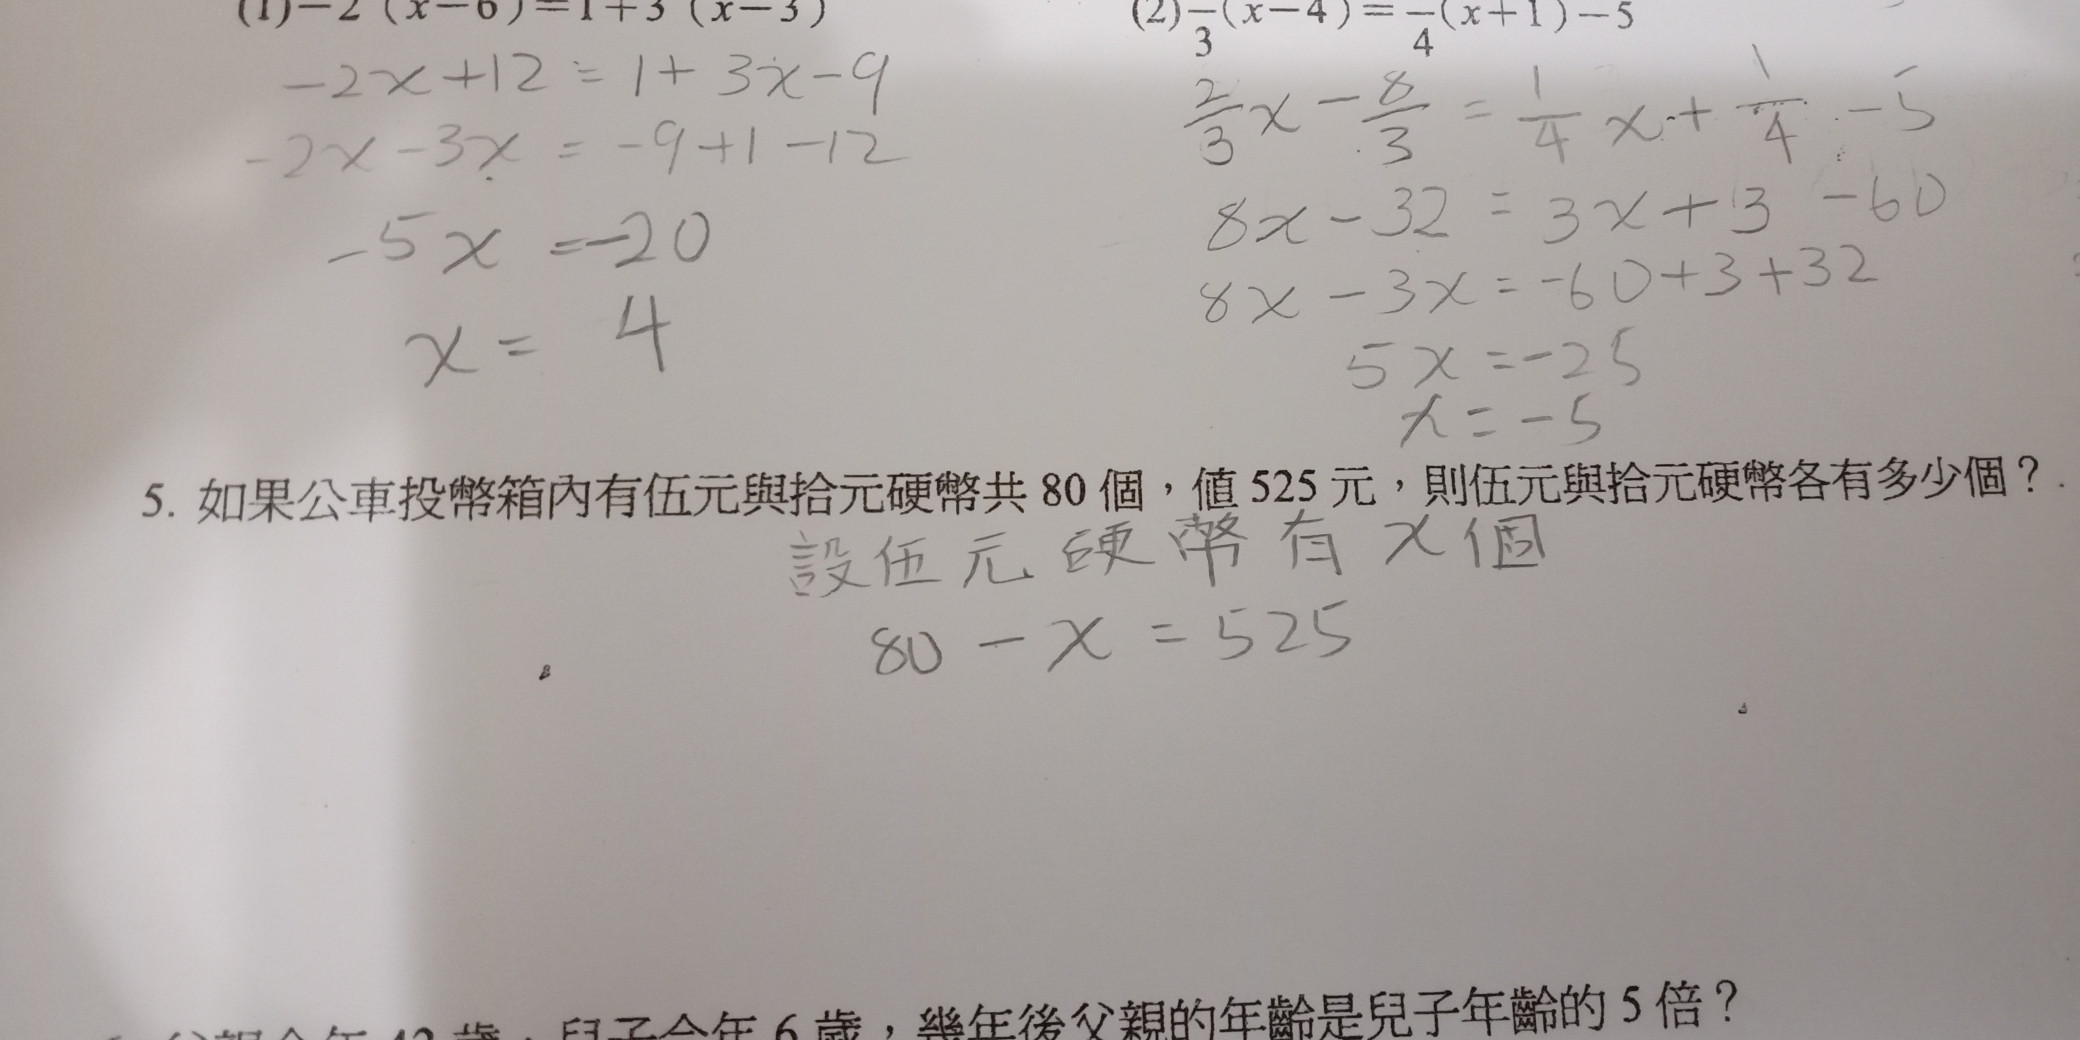 (1)－2（x－6）＝1＋3（x－3）
-2x+12=1+3x-9
-2x-3x=-9+1-12
-5x=-20
x=4
(2) /3(x－4)＝ /4(x＋1)－5
2/3x-8/3=1/4x+1/4-5
8x-32=3x+3-60
8x-3x=-60+3+32
5x=-25
x=-5
5. 如果公車投幣箱內有伍元與拾元硬幣共 80 個，值 525 元，則伍元與拾元硬幣各有多少個？
設伍元硬幣有x個
80-x=525
父親今年 42 歲，兒子今年 6 歲，幾年後父親的年齡是兒子年齡的 5 倍？